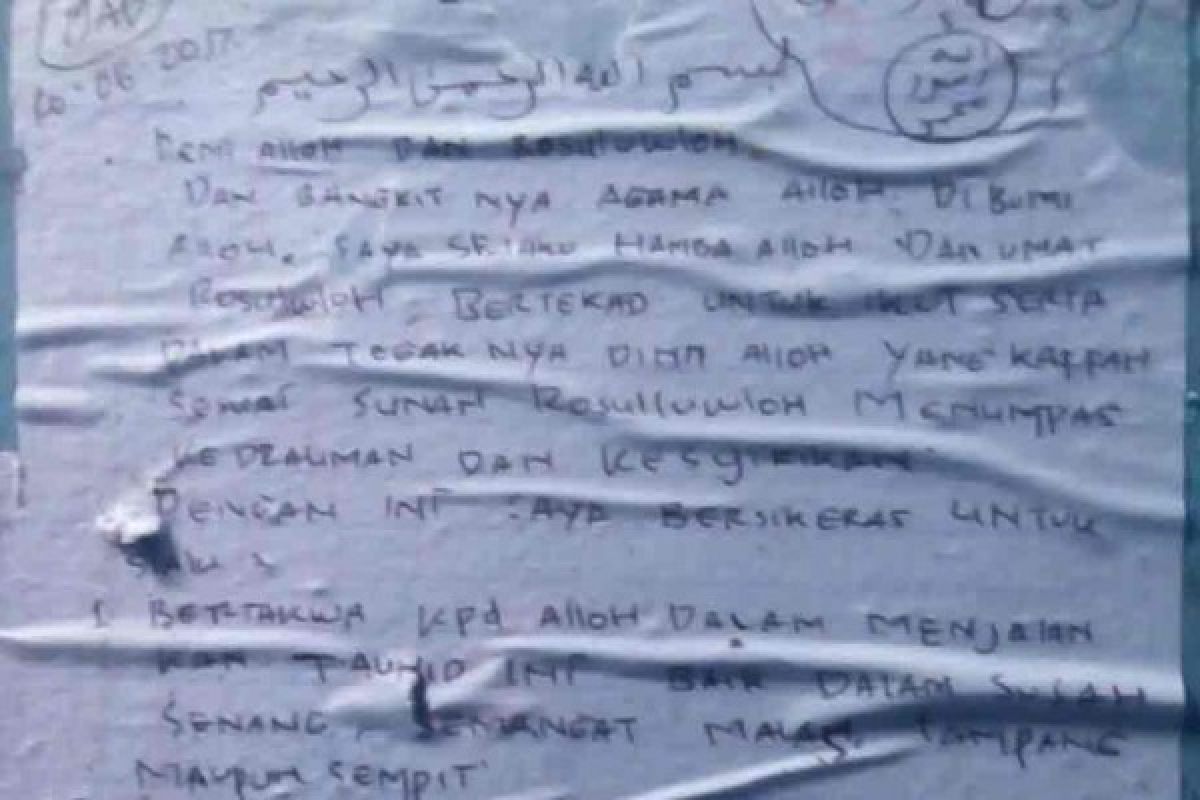 بسم الله الرحمن الرحيم
الله
رسول
محمد
DEMI AlloH DAN RosuluwloH
DAN BANGKIT NYA AGAMA AlloH DIBUMI
AlloH. SAYA SElAku HAMBA AlloH DAN UMAT
RosululoH BERTEKAD UNTUK IKUT SERTA
DALAM TEGAK NYA DINN AlloH YANG KAFFAH
SUNAH RosulluwloH MENUMPAS
KEDZALIMAN DAN KESYIRIKAN
DENGAN INI SAYA BERSIKERAS UNTUK
1 BERTAKWA KPd AlloH DALAM MENJALAN
KAN TAUHID INI BAIK DALAM SUSAH
SENANG, SEMANGAT MALAS, LAMPANG
MAUPUN SEMPIT